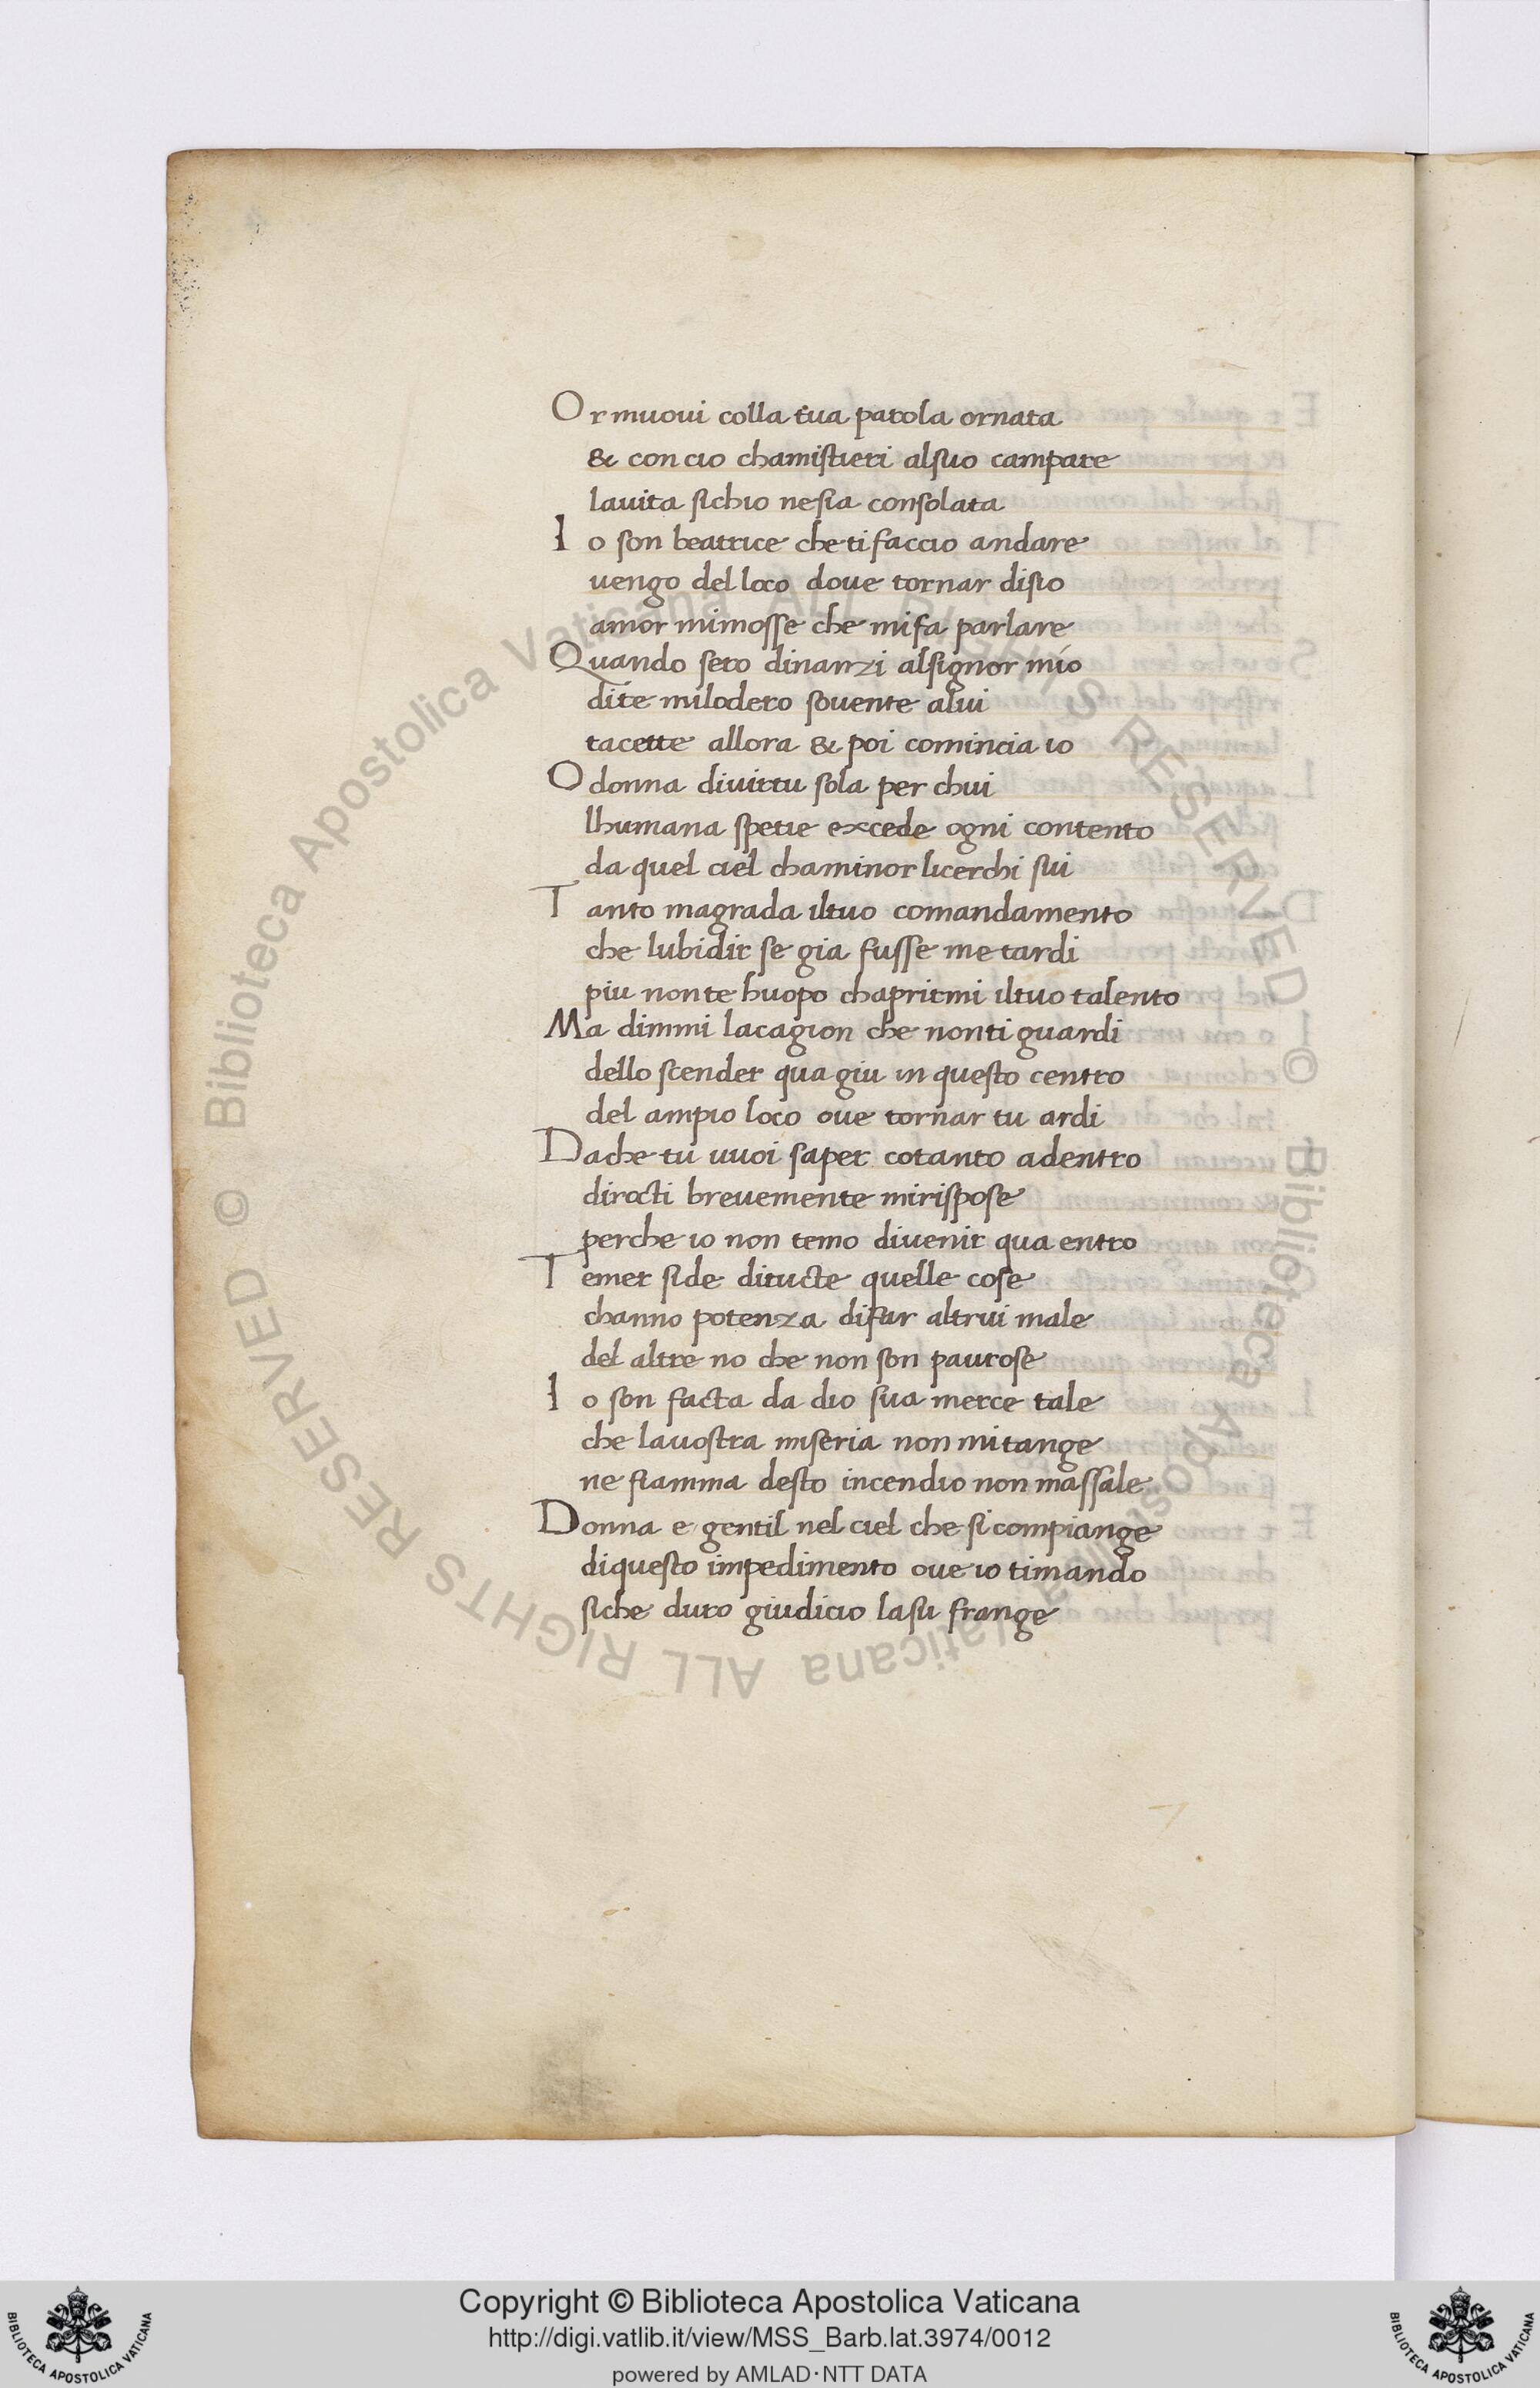 Or muoui colla tua parola ornata
& con cio chamistieri alsuo campare
lauita sichio nesia consolata
Io son beatrice che ti faccio andare
uengo del loco doue tornar disio
amor mimosse che mi fa parlare
Quando sero dinanzi alsignor mio
dite milodero souente alui
tacette allora & poi comincia io
O donna diuirtu sola per chui
lhumana spetie excede ogni contento
da quel ciel chaminor licerchi sui
Tanto magrada iltuo comandamento
che lubidir se gia fusse me tardi
piu non te huopo chaprirmi iltuo talento
Ma dimmi lacagion che nonti guardi
dello scender qua giu in questo centro
del ampio loco oue tornar tu ardi
Dache tu uuoi saper cotanto adentro
dirocti breuemente mirispose
perche io non temo diuenir qua entro
Temer side ditucte quelle cose
channo potenza difar altrui male
del altre no che non son paurose
Io son facta da dio sua merce tale
che lauostra miseria non mi tange
ne fiamma desto incendio non massale
Donna e gentil nel ciel che si compiange
diquesto impedimento oue io timando
siche duro giudicio lasu frange
Copyright © Biblioteca Apostolica Vaticana
http://digi.vatlib.it/view/MSS_Barb.lat.3974/0012
powered by AMLAD·NTT DATA
BIBLIOTECA APOSTOLICA VATICANA
BIBLIOTECA APOSTOLICA VATICANA
© Biblioteca Apostolica Vaticana ALL RIGHTS RESERVED © Biblioteca Apostolica Vaticana ALL RIGHTS RESERVED